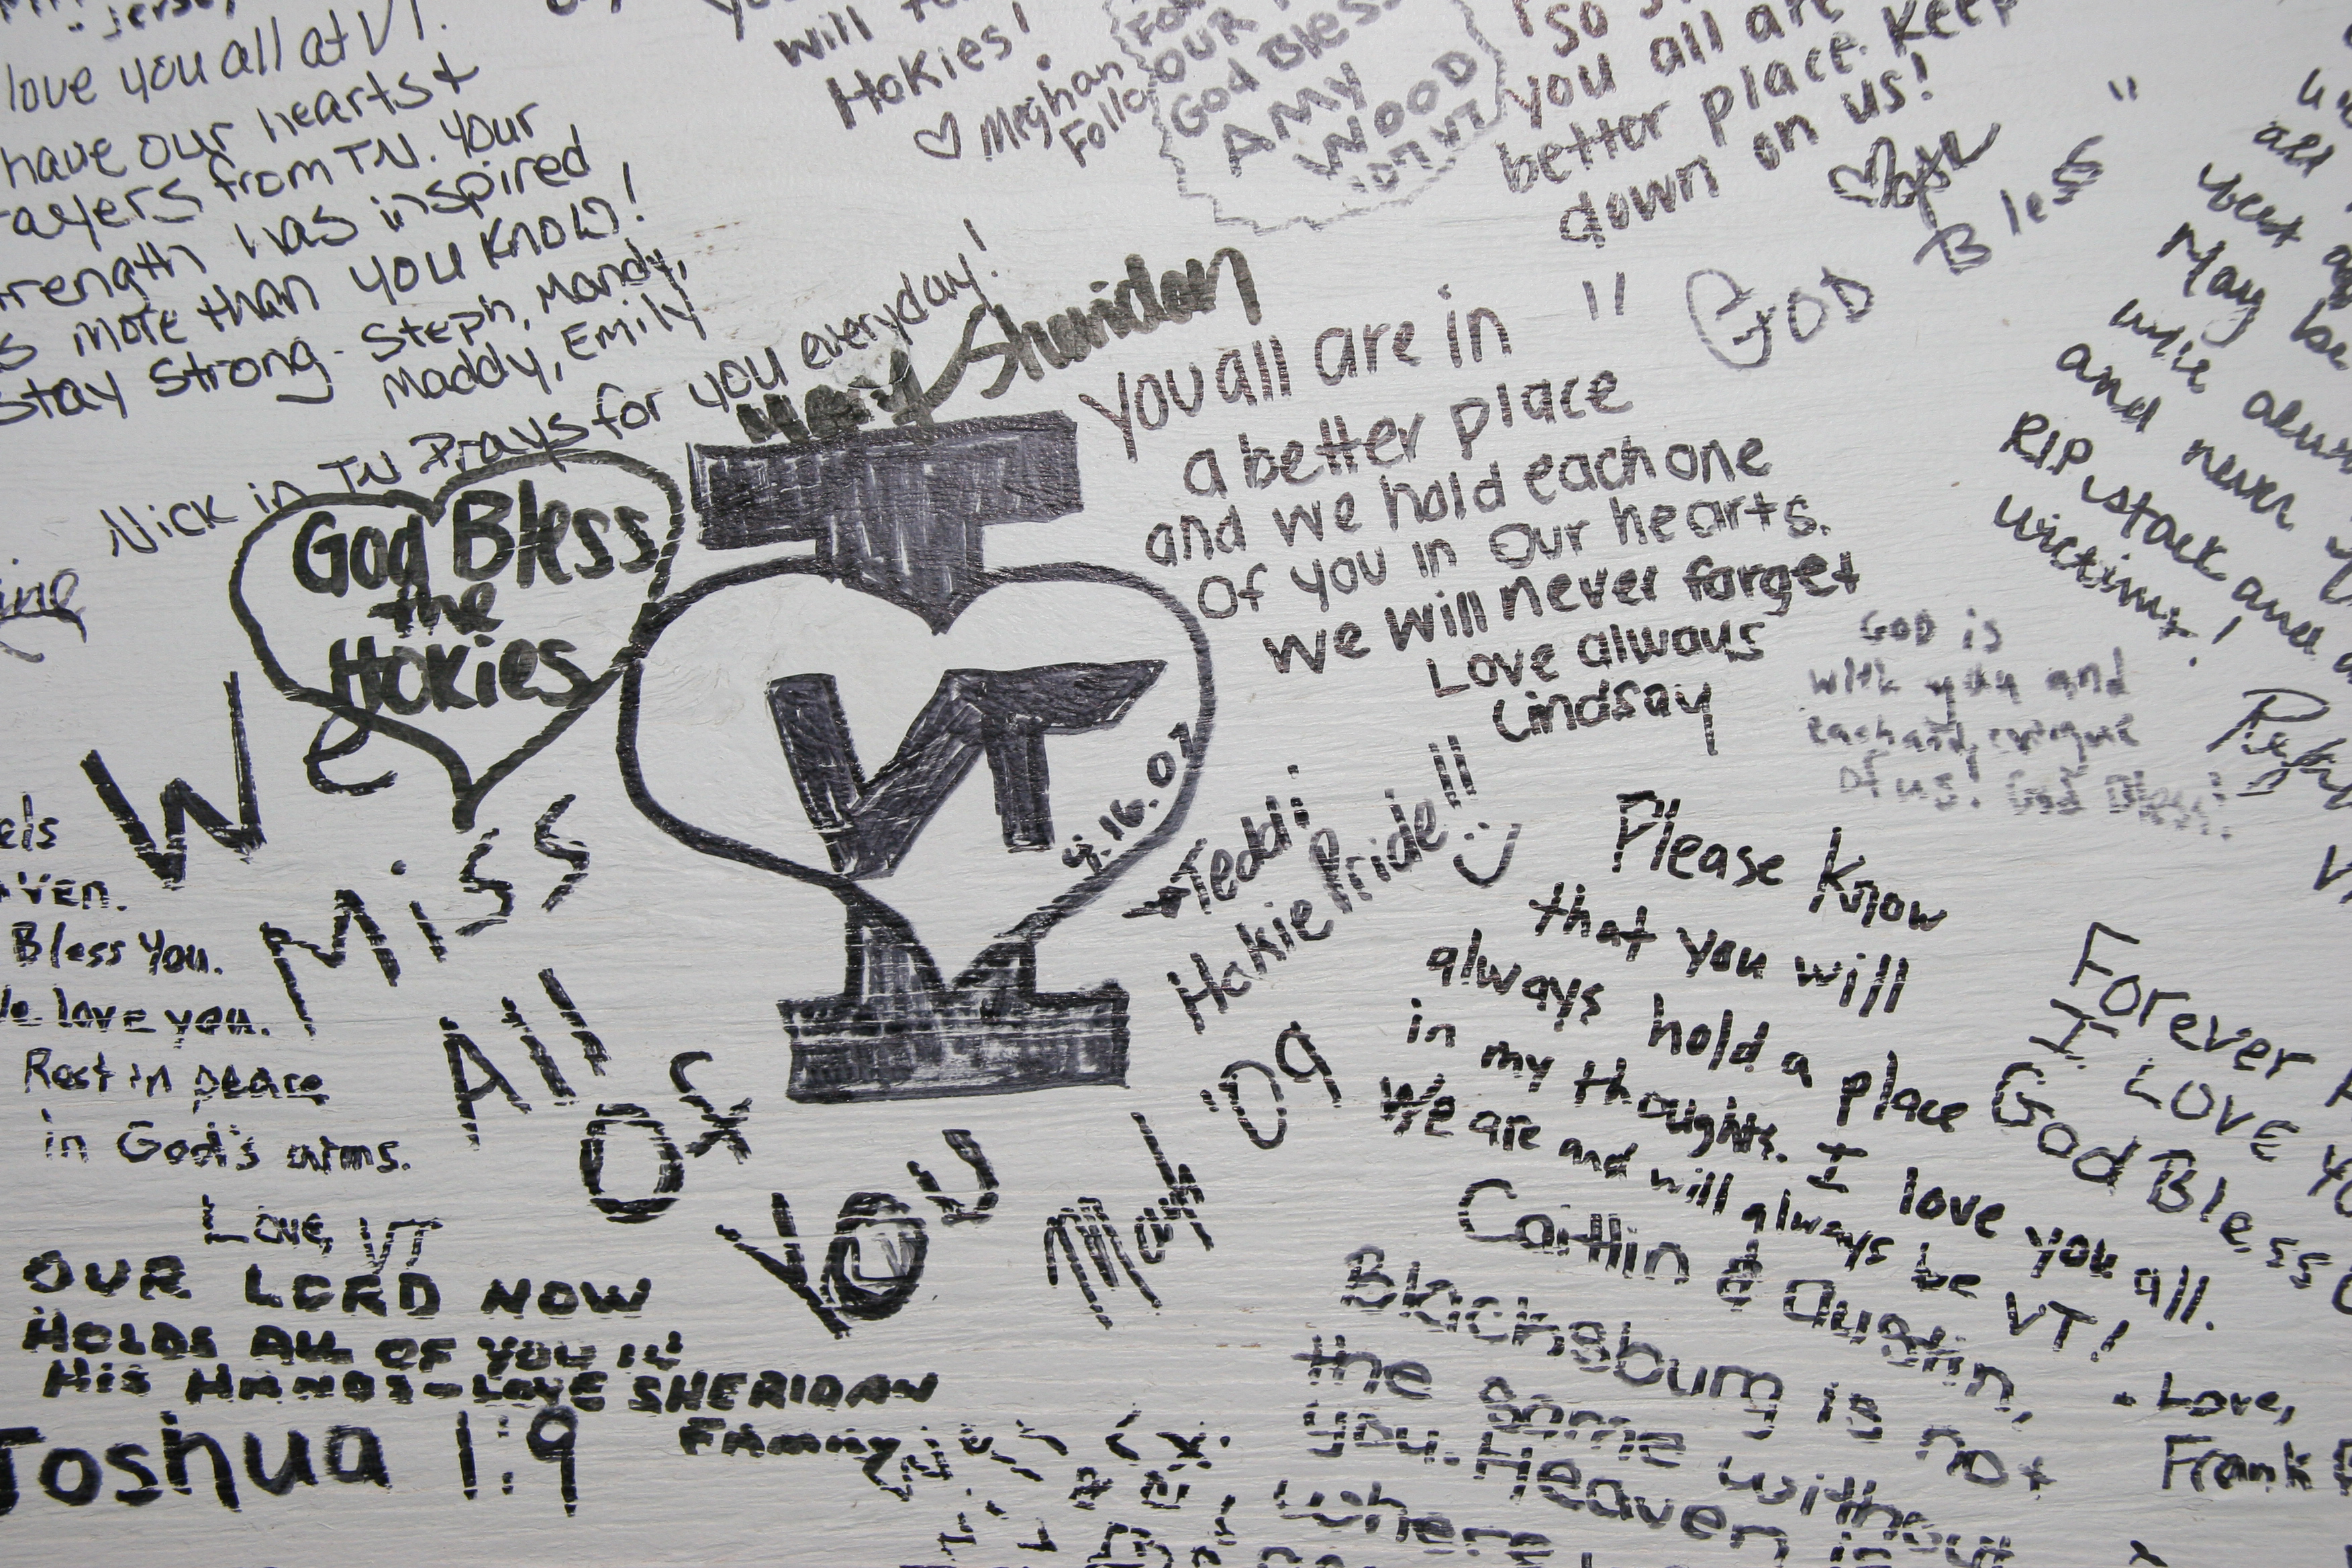 love you all at VT.
have our hearts +
from TN. Your
has inspired
more than you know!
Stay Strong. Steph, Mandy,
Maddy, Emily
Nick in TN Prays for you everyday!
will
Hokies!
♡ Meghan
OUR
God Bless
AMY
WOOD
'07 VT
so
you all are
better place. Keep
down on us!
"God Bless"
Mary Sheridan
God Bless
the
Hokies
I
VT
4.16.07
You all are in
a better place
and we hold each one
of you in our hearts.
we will never forget
Love always
Lindsay
all
May
and never
RIP stack and
victims!
GOD is
with you and
of us! God Bless!
We
Miss
All
Of
You
Teddi
Hokie Pride!!
Matt '09
Bless You.
love you.
Rest in peace
in God's arms.
Love, VT
OUR LORD NOW
HOLDS ALL OF YOU IN
HIS HANDS - LOVE SHERIDAN
Family
Joshua 1:9
Please know
that you will
always hold a place
in my thoughts. I love you all.
We are and will always be VT!
- Love,
Frank
Forever
I LOVE
God Bless
Caitlin & Austin,
Blacksburg is not
the same without
you. Heaven is
where